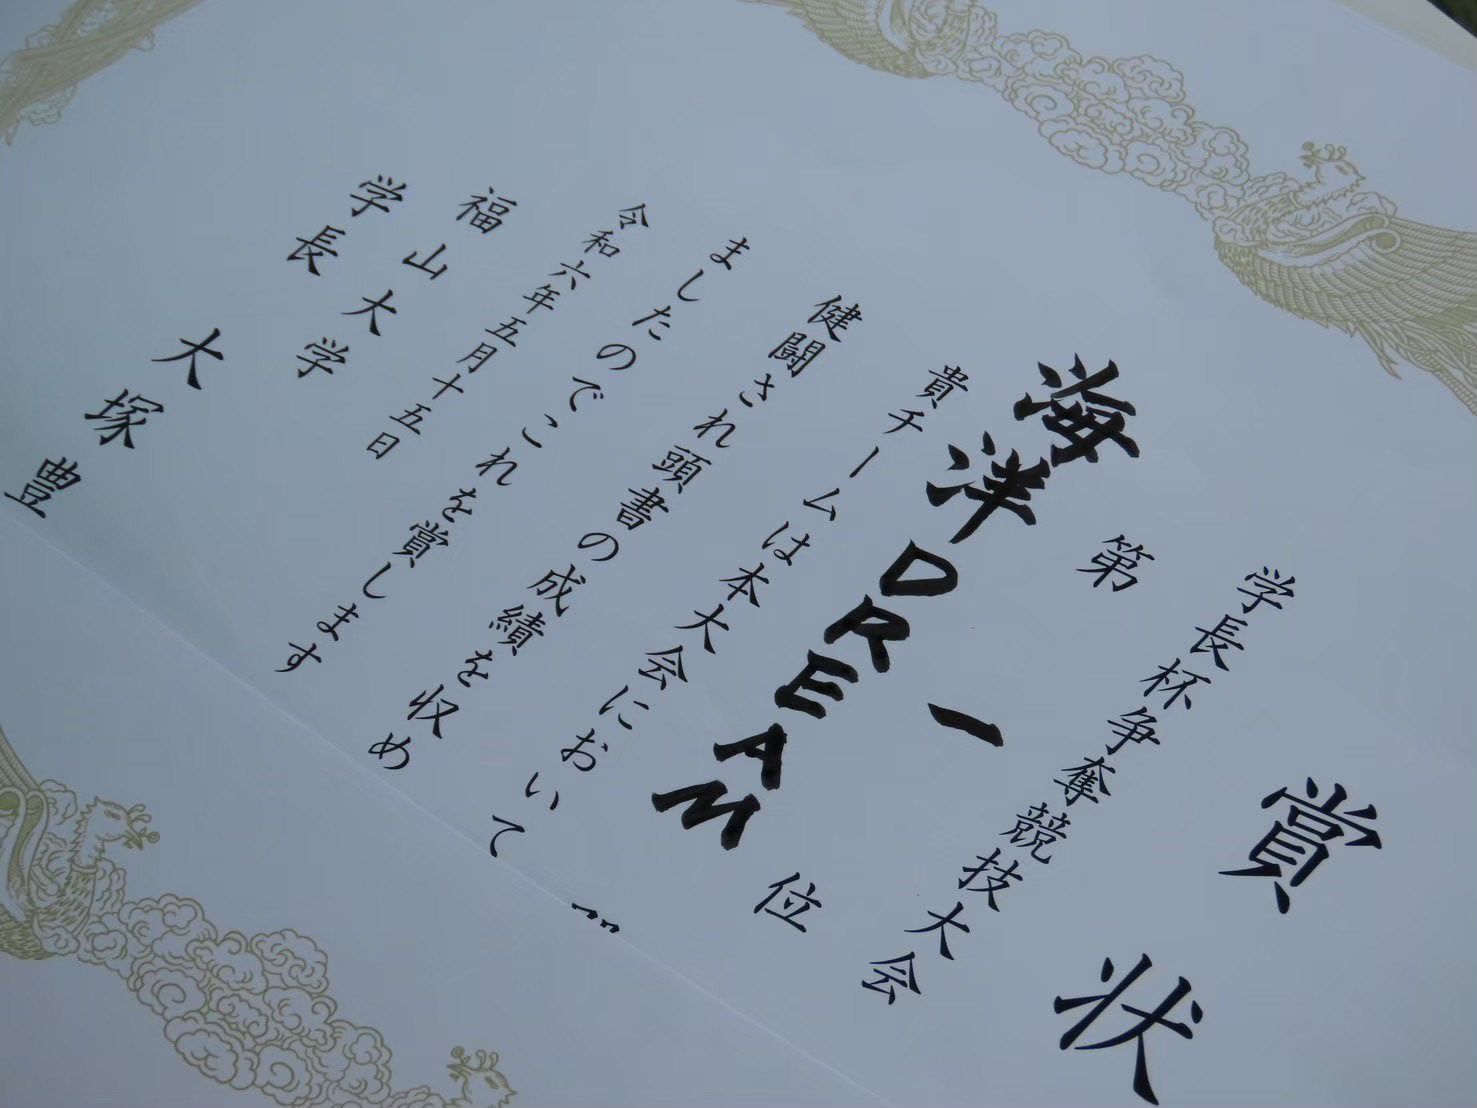 賞状
学長杯争奪競技大会
第一位
海洋DREAM
貴チームは本大会において
健闘され頭書の成績を収め
ましたのでこれを賞します
令和六年五月十五日
福山大学
学長 大塚豊